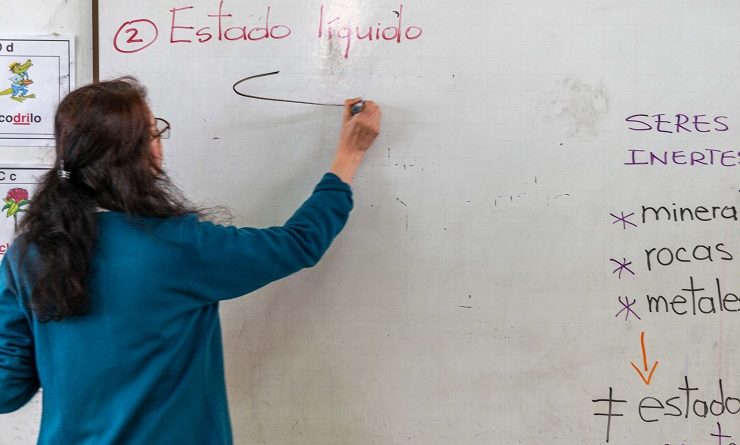 ② Estado líquido
D d
codrilo
C c
SERES
INERTES
* minera
* rocas
* metales
↓
≠ estado